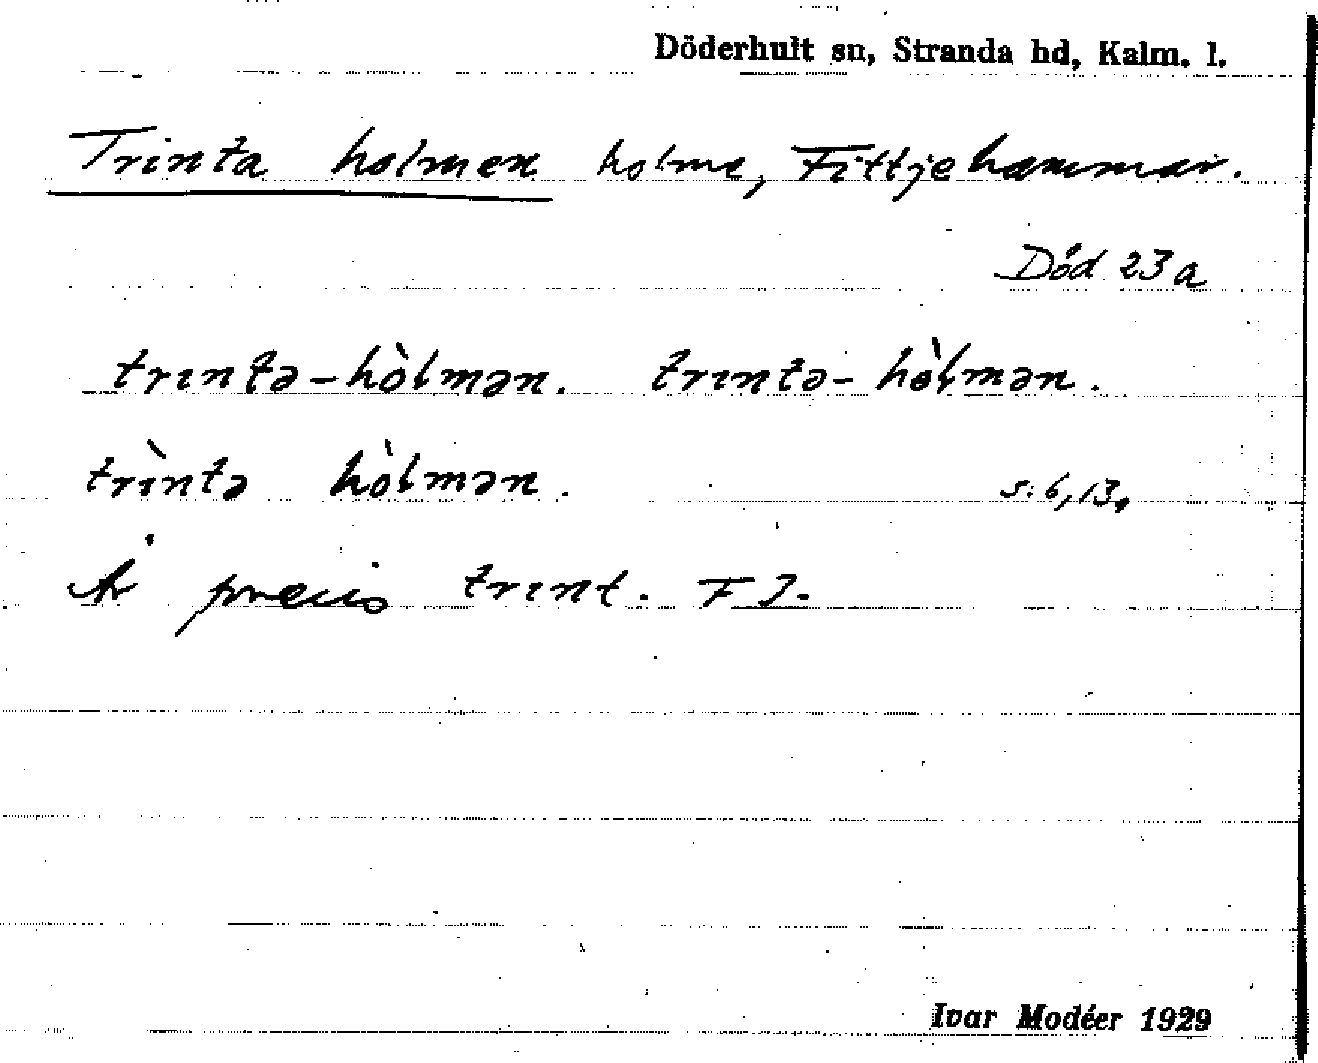 Döderhult sn, Stranda hd, Kalm. l.
Trinta holmen holme, Fittjehammar.
Död 23a
trıntə-hòlmən. trıntə-hòlmən.
trı̀ntə hòlmən.
s. 6, 13.
Är precis trınt. F J.
Ivar Modéer 1929